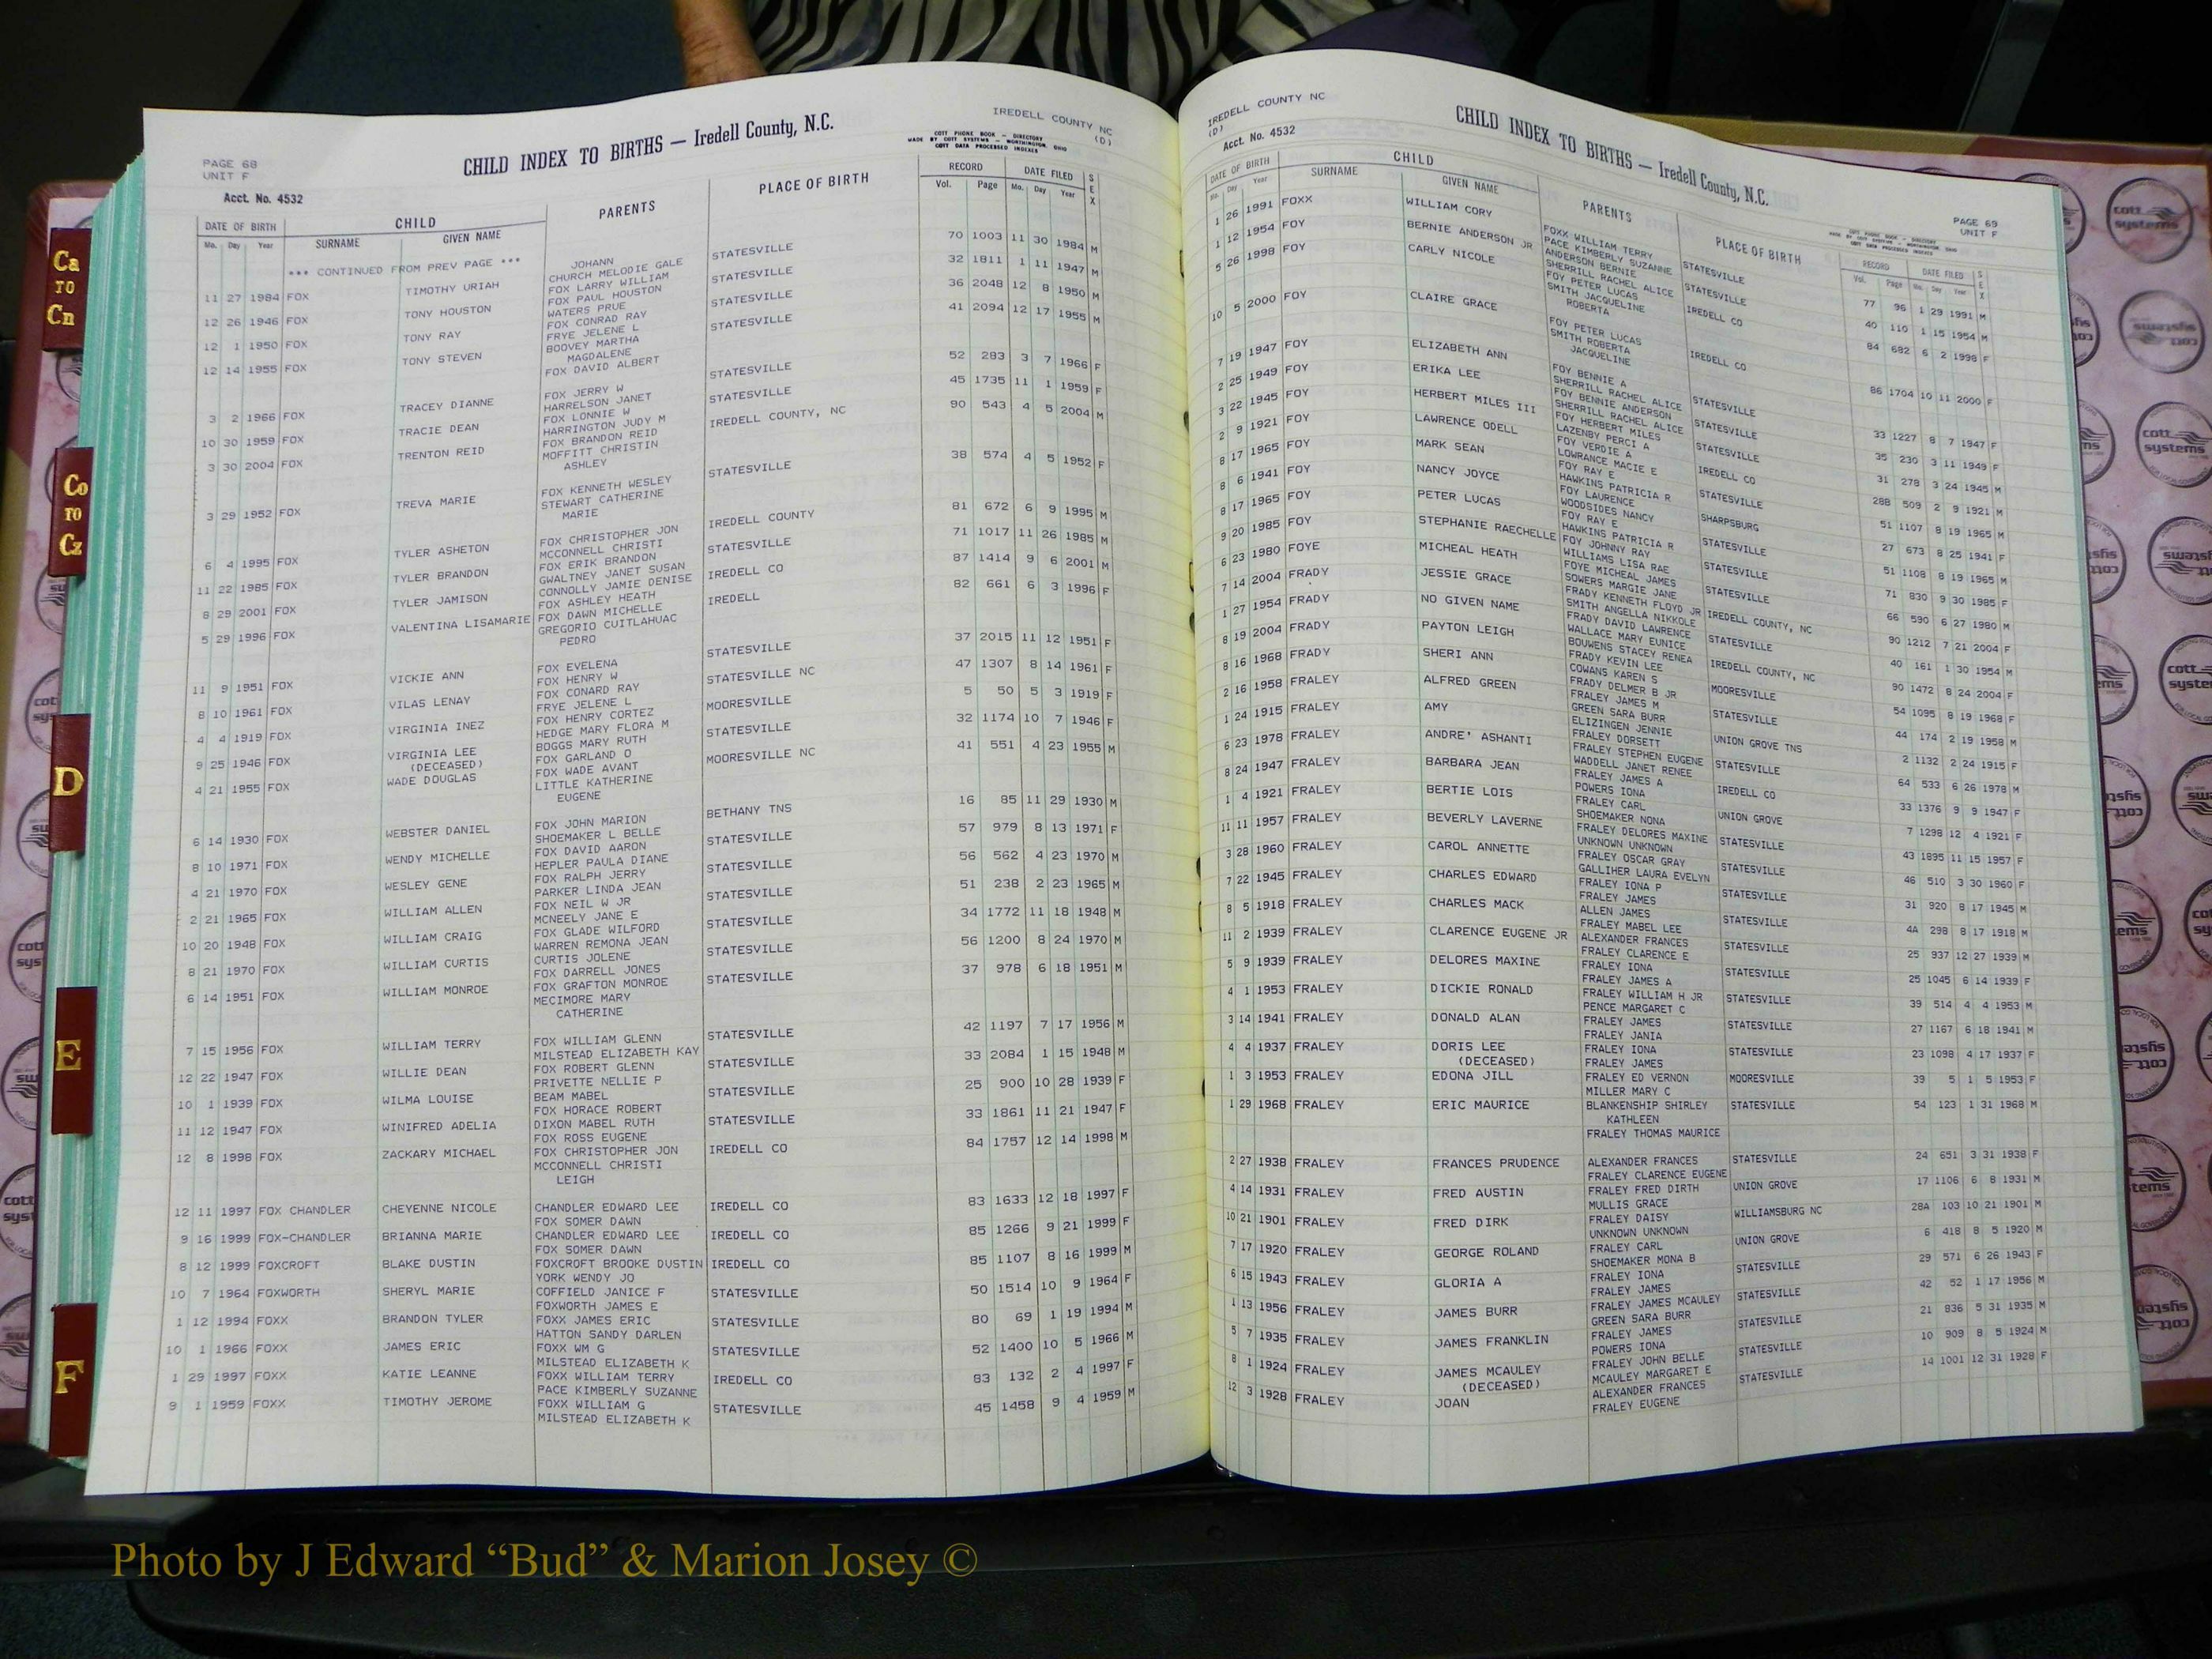 IREDELL COUNTY NC
(D)
PAGE 68
UNIT F
CHILD INDEX TO BIRTHS — Iredell County, N.C.
COTT PHONE BOOK — DIRECTORY
MADE BY COTT SYSTEMS — WORTHINGTON, OHIO
COTT DATA PROCESSED INDEXES
Acct. No. 4532
DATE OF BIRTH CHILD PARENTS PLACE OF BIRTH RECORD DATE FILED SEX
Mo. Day Year SURNAME GIVEN NAME Vol. Page Mo. Day Year
*** CONTINUED FROM PREV PAGE *** JOHANN
11 27 1984 FOX TIMOTHY URIAH CHURCH MELODIE GALE STATESVILLE 70 1003 11 30 1984 M
FOX LARRY WILLIAM
12 26 1946 FOX TONY HOUSTON FOX PAUL HOUSTON STATESVILLE 32 1811 1 11 1947 M
WATERS PRUE
12 1 1950 FOX TONY RAY FOX CONRAD RAY STATESVILLE 36 2048 12 8 1950 M
FRYE JELENE L
12 14 1955 FOX TONY STEVEN BOOVEY MARTHA STATESVILLE 41 2094 12 17 1955 M
MAGDALENE
FOX DAVID ALBERT
3 2 1966 FOX TRACEY DIANNE FOX JERRY W STATESVILLE 52 283 3 7 1966 F
HARRELSON JANET
10 30 1959 FOX TRACIE DEAN FOX LONNIE W STATESVILLE 45 1735 11 1 1959 F
HARRINGTON JUDY M
3 30 2004 FOX TRENTON REID FOX BRANDON REID IREDELL COUNTY, NC 90 543 4 5 2004 M
MOFFITT CHRISTIN
ASHLEY
3 29 1952 FOX TREVA MARIE FOX KENNETH WESLEY STATESVILLE 38 574 4 5 1952 F
STEWART CATHERINE
MARIE
6 4 1995 FOX TYLER ASHETON FOX CHRISTOPHER JON IREDELL COUNTY 81 672 6 9 1995 M
MCCONNELL CHRISTI
11 22 1985 FOX TYLER BRANDON FOX ERIK BRANDON STATESVILLE 71 1017 11 26 1985 M
GWALTNEY JANET SUSAN
8 29 2001 FOX TYLER JAMISON CONNOLLY JAMIE DENISE IREDELL CO 87 1414 9 6 2001 M
FOX ASHLEY HEATH
5 29 1996 FOX VALENTINA LISAMARIE FOX DAWN MICHELLE IREDELL 82 661 6 3 1996 F
GREGORIO CUITLAHUAC
PEDRO
11 9 1951 FOX VICKIE ANN FOX EVELENA STATESVILLE 37 2015 11 12 1951 F
FOX HENRY W
8 10 1961 FOX VILAS LENAY FOX CONARD RAY STATESVILLE NC 47 1307 8 14 1961 F
FRYE JELENE L
4 4 1919 FOX VIRGINIA INEZ FOX HENRY CORTEZ MOORESVILLE 5 50 5 3 1919 F
HEDGE MARY FLORA M
9 25 1946 FOX VIRGINIA LEE BOGGS MARY RUTH STATESVILLE 32 1174 10 7 1946 F
(DECEASED) FOX GARLAND O
4 21 1955 FOX WADE DOUGLAS FOX WADE AVANT MOORESVILLE NC 41 551 4 23 1955 M
LITTLE KATHERINE
EUGENE
6 14 1930 FOX WEBSTER DANIEL FOX JOHN MARION BETHANY TNS 16 85 11 29 1930 M
SHOEMAKER L BELLE
8 10 1971 FOX WENDY MICHELLE FOX DAVID AARON STATESVILLE 57 979 8 13 1971 F
HEPLER PAULA DIANE
4 21 1970 FOX WESLEY GENE FOX RALPH JERRY STATESVILLE 56 562 4 23 1970 M
PARKER LINDA JEAN
2 21 1965 FOX WILLIAM ALLEN FOX NEIL W JR STATESVILLE 51 238 2 23 1965 M
MCNEELY JANE E
10 20 1948 FOX WILLIAM CRAIG FOX GLADE WILFORD STATESVILLE 34 1772 11 18 1948 M
WARREN REMONA JEAN
8 21 1970 FOX WILLIAM CURTIS CURTIS JOLENE STATESVILLE 56 1200 8 24 1970 M
FOX DARRELL JONES
6 14 1951 FOX WILLIAM MONROE FOX GRAFTON MONROE STATESVILLE 37 978 6 18 1951 M
MECIMORE MARY
CATHERINE
7 15 1956 FOX WILLIAM TERRY FOX WILLIAM GLENN STATESVILLE 42 1197 7 17 1956 M
MILSTEAD ELIZABETH KAY
12 22 1947 FOX WILLIE DEAN FOX ROBERT GLENN STATESVILLE 33 2084 1 15 1948 M
PRIVETTE NELLIE P
10 1 1939 FOX WILMA LOUISE BEAM MABEL STATESVILLE 25 900 10 28 1939 F
FOX HORACE ROBERT
11 12 1947 FOX WINIFRED ADELIA DIXON MABEL RUTH STATESVILLE 33 1861 11 21 1947 F
FOX ROSS EUGENE
12 8 1998 FOX ZACKARY MICHAEL FOX CHRISTOPHER JON IREDELL CO 84 1757 12 14 1998 M
MCCONNELL CHRISTI
LEIGH
12 11 1997 FOX CHANDLER CHEYENNE NICOLE CHANDLER EDWARD LEE IREDELL CO 83 1633 12 18 1997 F
FOX SOMER DAWN
9 16 1999 FOX-CHANDLER BRIANNA MARIE CHANDLER EDWARD LEE IREDELL CO 85 1266 9 21 1999 F
FOX SOMER DAWN
8 12 1999 FOXCROFT BLAKE DUSTIN FOXCROFT BROOKE DUSTIN IREDELL CO 85 1107 8 16 1999 M
YORK WENDY JO
10 7 1964 FOXWORTH SHERYL MARIE COFFIELD JANICE F STATESVILLE 50 1514 10 9 1964 F
FOXWORTH JAMES E
1 12 1994 FOXX BRANDON TYLER FOXX JAMES ERIC STATESVILLE 80 69 1 19 1994 M
HATTON SANDY DARLEN
10 1 1966 FOXX JAMES ERIC FOXX WM G STATESVILLE 52 1400 10 5 1966 M
MILSTEAD ELIZABETH K
1 29 1997 FOXX KATIE LEANNE FOXX WILLIAM TERRY IREDELL CO 83 132 2 4 1997 F
PACE KIMBERLY SUZANNE
9 1 1959 FOXX TIMOTHY JEROME FOXX WILLIAM G STATESVILLE 45 1458 9 4 1959 M
MILSTEAD ELIZABETH K
IREDELL COUNTY NC
(D)
Acct. No. 4532
CHILD INDEX TO BIRTHS — Iredell County, N.C.
PAGE 69
UNIT F
DATE OF BIRTH CHILD PARENTS PLACE OF BIRTH RECORD DATE FILED SEX
Mo. Day Year SURNAME GIVEN NAME Vol. Page Mo. Day Year
1 26 1991 FOXX WILLIAM CORY FOXX WILLIAM TERRY STATESVILLE 77 96 1 29 1991 M
PACE KIMBERLY SUZANNE
1 12 1954 FOY BERNIE ANDERSON JR ANDERSON BERNIE STATESVILLE 40 110 1 15 1954 M
SHERRILL RACHEL ALICE
5 26 1998 FOY CARLY NICOLE FOY PETER LUCAS IREDELL CO 84 682 6 2 1998 F
SMITH JACQUELINE
ROBERTA
10 5 2000 FOY CLAIRE GRACE FOY PETER LUCAS IREDELL CO 86 1704 10 11 2000 F
SMITH ROBERTA
JACQUELINE
7 19 1947 FOY ELIZABETH ANN FOY BENNIE A STATESVILLE 33 1227 8 7 1947 F
SHERRILL RACHEL ALICE
2 25 1949 FOY ERIKA LEE FOY BENNIE ANDERSON STATESVILLE 35 230 3 11 1949 F
SHERRILL RACHEL ALICE
3 22 1945 FOY HERBERT MILES III FOY HERBERT MILES IREDELL CO 31 278 3 24 1945 M
LAZENBY PERCI A
2 9 1921 FOY LAWRENCE ODELL FOY VERDIE A STATESVILLE 28B 509 2 9 1921 M
LOWRANCE MACIE E
8 17 1965 FOY MARK SEAN FOY RAY E SHARPSBURG 51 1107 8 19 1965 M
HAWKINS PATRICIA R
8 6 1941 FOY NANCY JOYCE FOY LAURENCE STATESVILLE 27 673 8 25 1941 F
WOODSIDES NANCY
8 17 1965 FOY PETER LUCAS FOY RAY E STATESVILLE 51 1108 8 19 1965 M
HAWKINS PATRICIA R
9 20 1985 FOY STEPHANIE RAECHELLE FOY JOHNNY RAY STATESVILLE 71 830 9 30 1985 F
WILLIAMS LISA RAE
6 23 1980 FOYE MICHEAL HEATH FOYE MICHEAL JAMES 66 590 6 27 1980 M
SOWERS MARGIE JANE
7 14 2004 FRADY JESSIE GRACE FRADY KENNETH FLOYD JR IREDELL COUNTY, NC 90 1212 7 21 2004 F
SMITH ANGELLA NIKKOLE
1 27 1954 FRADY NO GIVEN NAME FRADY DAVID LAWRENCE STATESVILLE 40 161 1 30 1954 M
WALLACE MARY EUNICE
8 19 2004 FRADY PAYTON LEIGH BOUWENS STACEY RENEA IREDELL COUNTY, NC 90 1472 8 24 2004 F
FRADY KEVIN LEE
8 16 1968 FRADY SHERI ANN COWANS KAREN S MOORESVILLE 54 1095 8 19 1968 F
FRADY DELMER B JR
2 16 1958 FRALEY ALFRED GREEN FRALEY JAMES M STATESVILLE 44 174 2 19 1958 M
GREEN SARA BURR
1 24 1915 FRALEY AMY ELIZINGEN JENNIE UNION GROVE TNS 2 1132 2 24 1915 F
FRALEY DORSETT
6 23 1978 FRALEY ANDRE' ASHANTI FRALEY STEPHEN EUGENE STATESVILLE 64 533 6 26 1978 M
WADDELL JANET RENEE
8 24 1947 FRALEY BARBARA JEAN FRALEY JAMES A IREDELL CO 33 1376 9 9 1947 F
POWERS IONA
1 4 1921 FRALEY BERTIE LOIS FRALEY CARL UNION GROVE 7 1298 12 4 1921 F
SHOEMAKER NONA
11 11 1957 FRALEY BEVERLY LAVERNE FRALEY DELORES MAXINE STATESVILLE 43 1895 11 15 1957 F
UNKNOWN UNKNOWN
3 28 1960 FRALEY CAROL ANNETTE FRALEY OSCAR GRAY STATESVILLE 46 510 3 30 1960 F
GALLIHER LAURA EVELYN
7 22 1945 FRALEY CHARLES EDWARD FRALEY IONA P STATESVILLE 31 920 8 17 1945 M
FRALEY JAMES
8 5 1918 FRALEY CHARLES MACK ALLEN JAMES STATESVILLE 4A 298 8 17 1918 M
FRALEY MABEL LEE
11 2 1939 FRALEY CLARENCE EUGENE JR ALEXANDER FRANCES STATESVILLE 25 937 12 27 1939 M
FRALEY CLARENCE E
5 9 1939 FRALEY DELORES MAXINE FRALEY IONA STATESVILLE 25 1045 6 14 1939 F
FRALEY JAMES A
4 1 1953 FRALEY DICKIE RONALD FRALEY WILLIAM H JR STATESVILLE 39 514 4 4 1953 M
PENCE MARGARET C
3 14 1941 FRALEY DONALD ALAN FRALEY JAMES STATESVILLE 27 1167 6 18 1941 M
FRALEY JANIA
4 4 1937 FRALEY DORIS LEE FRALEY IONA STATESVILLE 23 1098 4 17 1937 F
(DECEASED) FRALEY JAMES
1 3 1953 FRALEY EDONA JILL FRALEY ED VERNON MOORESVILLE 39 5 1 5 1953 F
MILLER MARY C
1 29 1968 FRALEY ERIC MAURICE BLANKENSHIP SHIRLEY STATESVILLE 54 123 1 31 1968 M
KATHLEEN
FRALEY THOMAS MAURICE
2 27 1938 FRALEY FRANCES PRUDENCE ALEXANDER FRANCES STATESVILLE 24 651 3 31 1938 F
FRALEY CLARENCE EUGENE
4 14 1931 FRALEY FRED AUSTIN FRALEY FRED DIRTH UNION GROVE 17 1106 6 8 1931 M
MULLIS GRACE
10 21 1901 FRALEY FRED DIRK FRALEY DAISY WILLIAMSBURG NC 28A 103 10 21 1901 M
UNKNOWN UNKNOWN
7 17 1920 FRALEY GEORGE ROLAND FRALEY CARL UNION GROVE 6 418 8 5 1920 M
SHOEMAKER MONA B
6 15 1943 FRALEY GLORIA A FRALEY IONA STATESVILLE 29 571 6 26 1943 F
FRALEY JAMES
1 13 1956 FRALEY JAMES BURR FRALEY JAMES MCAULEY STATESVILLE 42 52 1 17 1956 M
GREEN SARA BURR
5 7 1935 FRALEY JAMES FRANKLIN FRALEY JAMES STATESVILLE 21 836 5 31 1935 M
POWERS IONA
8 1 1924 FRALEY JAMES MCAULEY FRALEY JOHN BELLE STATESVILLE 10 909 8 5 1924 M
(DECEASED) MCAULEY MARGARET E
12 3 1928 FRALEY JOAN ALEXANDER FRANCES STATESVILLE 14 1001 12 31 1928 F
FRALEY EUGENE
Ca
TO
Cn
Co
TO
Cz
D
E
F
cott
systems
Photo by J Edward “Bud” & Marion Josey ©